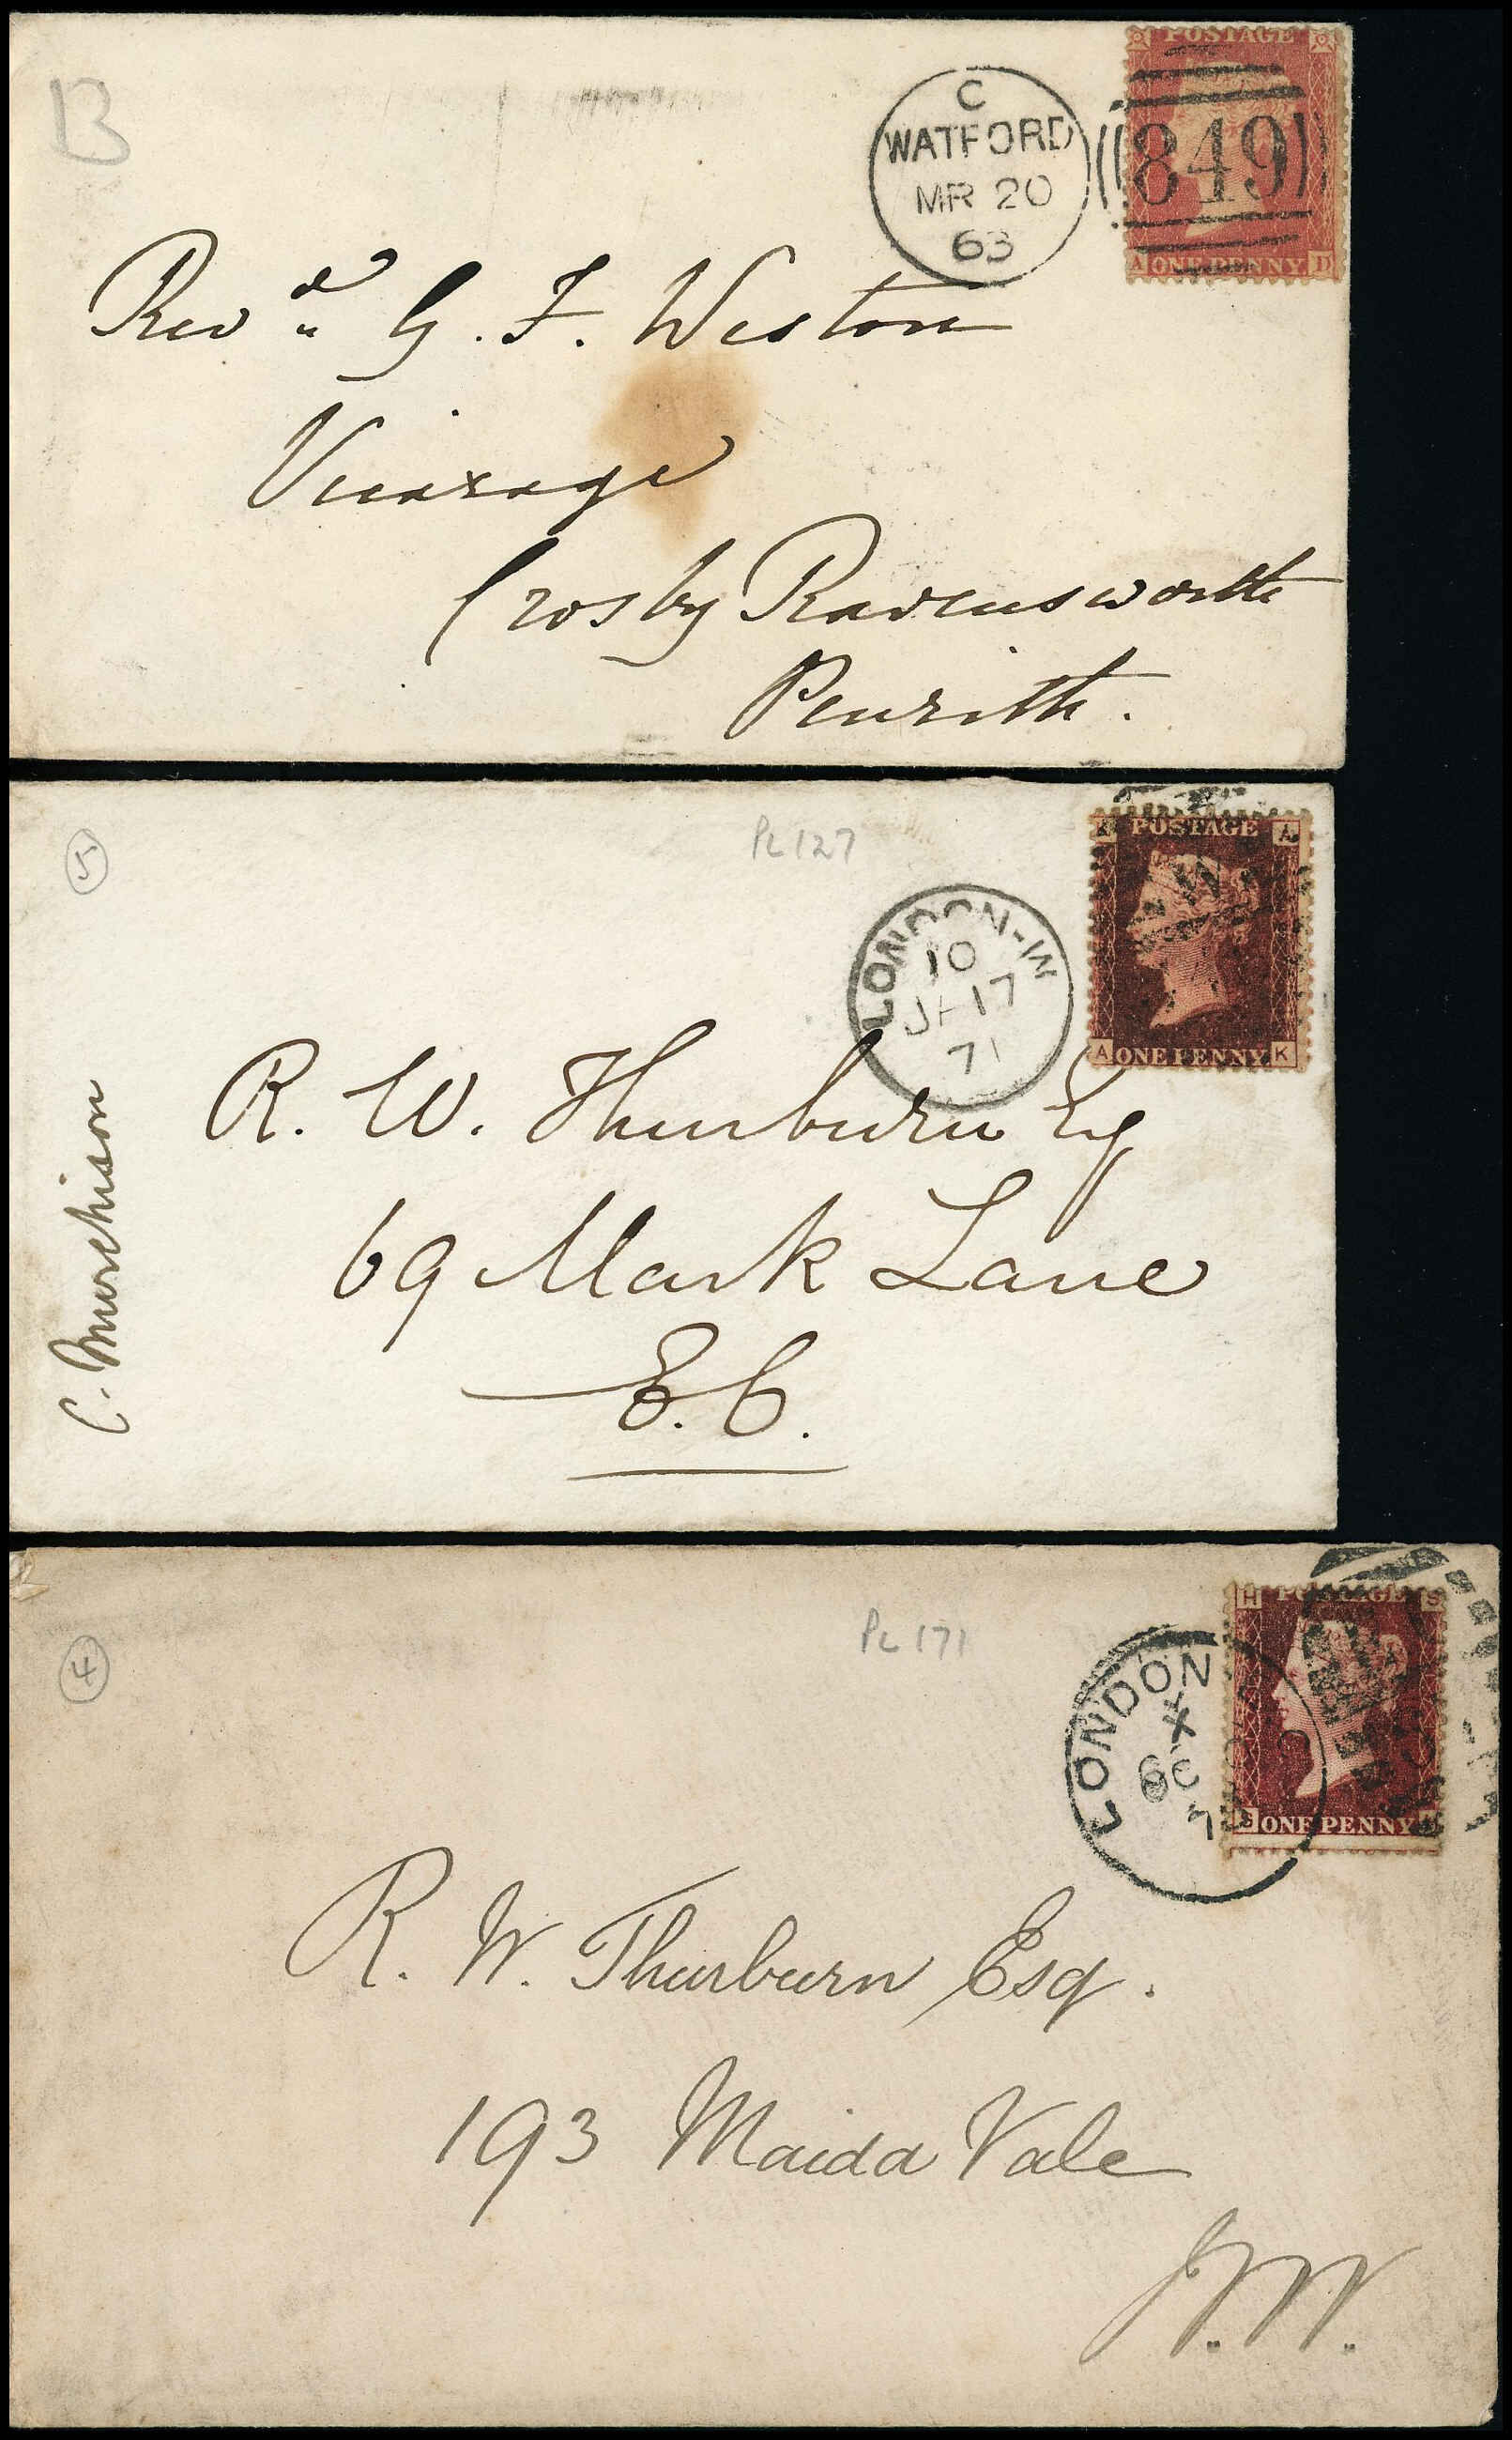 B
C
WATFORD
MR 20
63
849
POSTAGE
A ONE PENNY D
Revd G. F. Weston
Vicarage
Crosby Ravensworth
Penrith.
5
PL 127
LONDON-W
10
JA 17
71
W
POSTAGE A
A ONE PENNY K
C. Murchison
R. W. Thurburn Esq
69 Mark Lane
E.C.
4
PL 171
LONDON
X
OC
7
H POSTAGE S
ONE PENNY
R. W. Thurburn Esq.
193 Maida Vale
N.W.